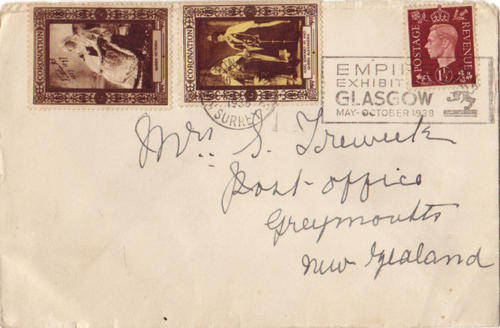 CORONATION
CORONATION
POSTAGE REVENUE
1½D
EMPIRE
EXHIBITION
GLASGOW
MAY-OCTOBER 1938
1938
SURREY
Mrs S. Treweek
Post-office
Greymouth
New Zealand